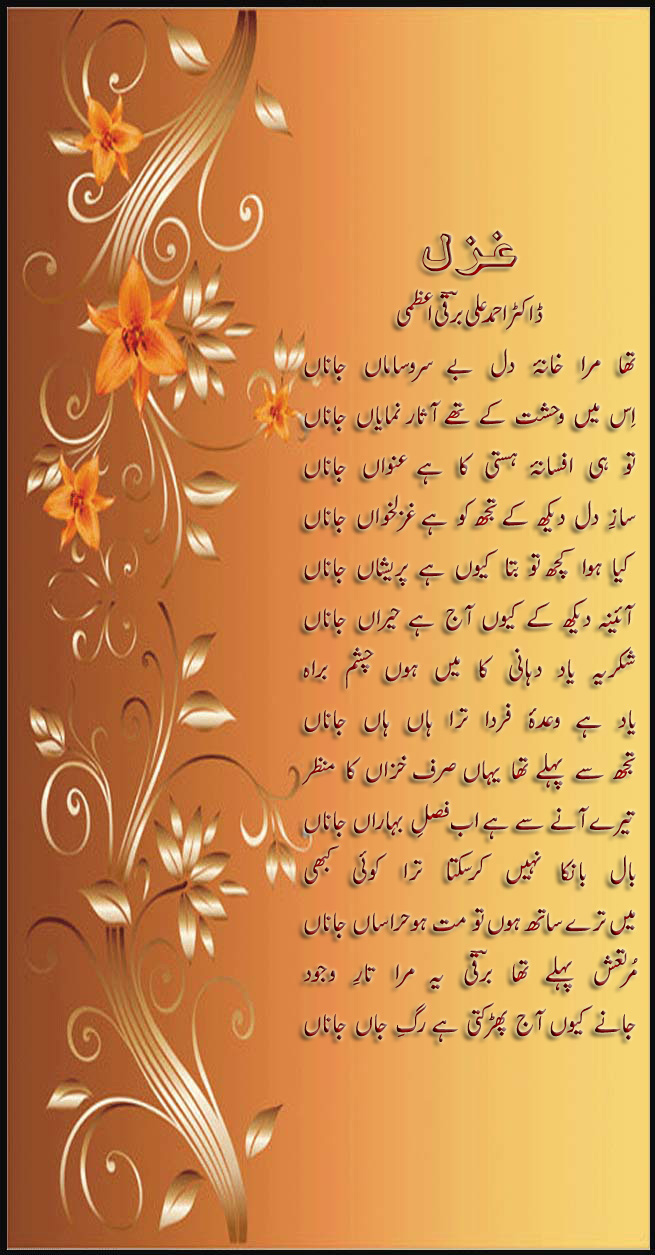 غزل
ڈاکٹر احمد علی برقؔی اعظمی
تھا مرا خانۂ دل بے سروساماں جاناں
اِس میں وحشت کے تھے آثار نمایاں جاناں
تو ہی افسانۂ ہستی کا ہے عنواں جاناں
سازِ دل دیکھ کے تجھ کو ہے غزلخواں جاناں
کیا ہوا کچھ تو بتا کیوں ہے پریشاں جاناں
آئینہ دیکھ کے کیوں آج ہے حیراں جاناں
شکریہ یاد دہانی کا میں ہوں چشم براہ
یاد ہے وعدۂ فردا ترا ہاں ہاں جاناں
تجھ سے پہلے تھا یہاں صرف خزاں کا منظر
تیرے آنے سے ہے اب فصلِ بہاراں جاناں
بال بانکا نہیں کرسکتا ترا کوئی کبھی
میں ترے ساتھ ہوں تو مت ہو حراساں جاناں
مُرتعش پہلے تھا برقؔی یہ مرا تارِ وجود
جانے کیوں آج پھڑکتی ہے رگِ جاں جاناں